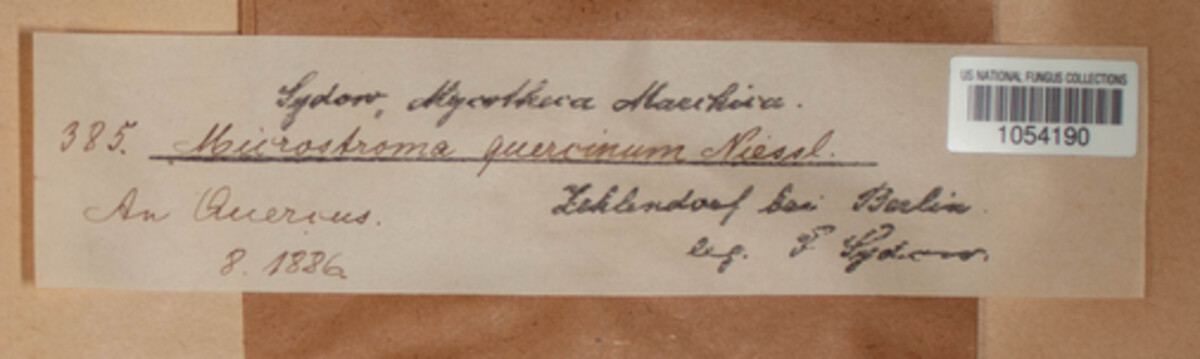 Sydow, Mycotheca Marchica.
385. Microstroma quercinum Niessl.
An Quercus.
8. 1886
Zehlendorf bei Berlin.
leg. P Sydow.
US NATIONAL FUNGUS COLLECTIONS
1054190